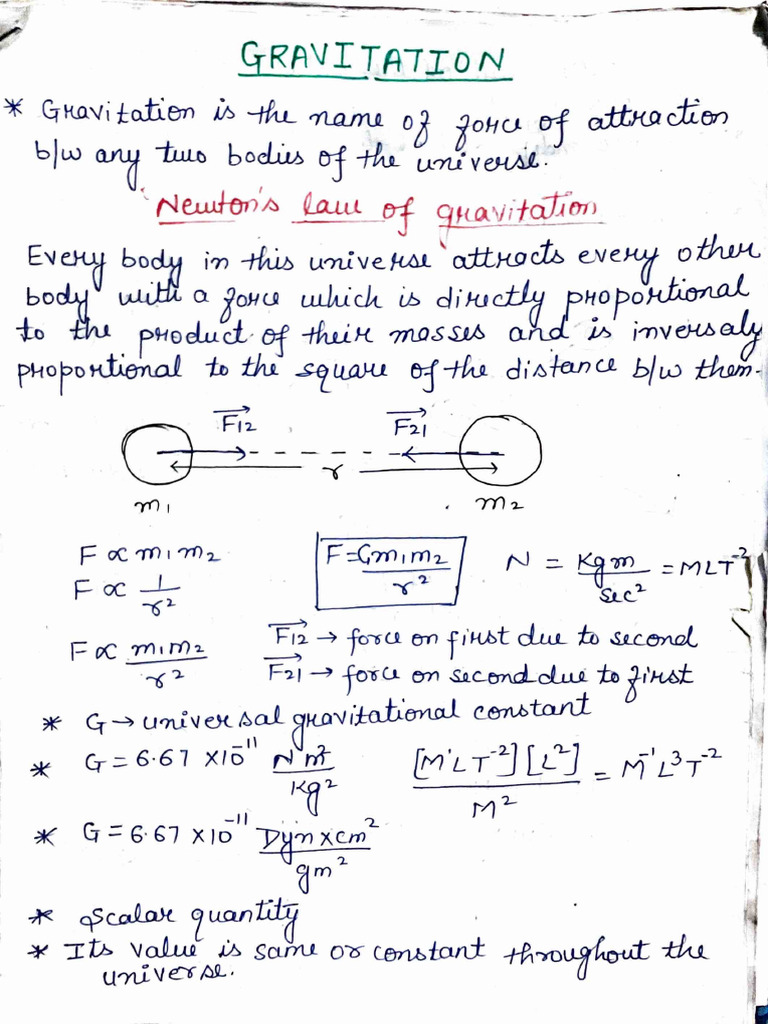 GRAVITATION
* Gravitation is the name of force of attraction
b/w any two bodies of the universe.
Newton's law of gravitation
Every body in this universe attracts every other
body with a force which is directly proportional
to the product of their masses and is inversaly
proportional to the square of the distance b/w them.
F12 F21
r
m1 m2
F ∝ m1m2 F = Gm1m2/r² N = Kgm/Sec² = MLT⁻²
F ∝ 1/r²
F ∝ m1m2/r² F12 → force on first due to second
F21 → force on second due to first
* G → universal gravitational constant
* G = 6.67 ×10⁻¹¹ Nm²/Kg² [M¹LT⁻²][L²]/M² = M⁻¹L³T⁻²
* G = 6.67 ×10⁻¹¹ Dyn×cm²/gm²
* Scalar quantity
* Its value is same or constant throughout the
universe.